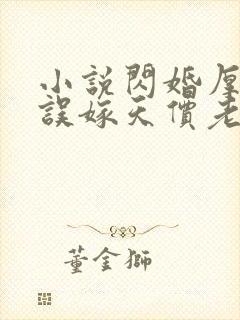 小說閃婚厚
誤嫁天價老
董金獅